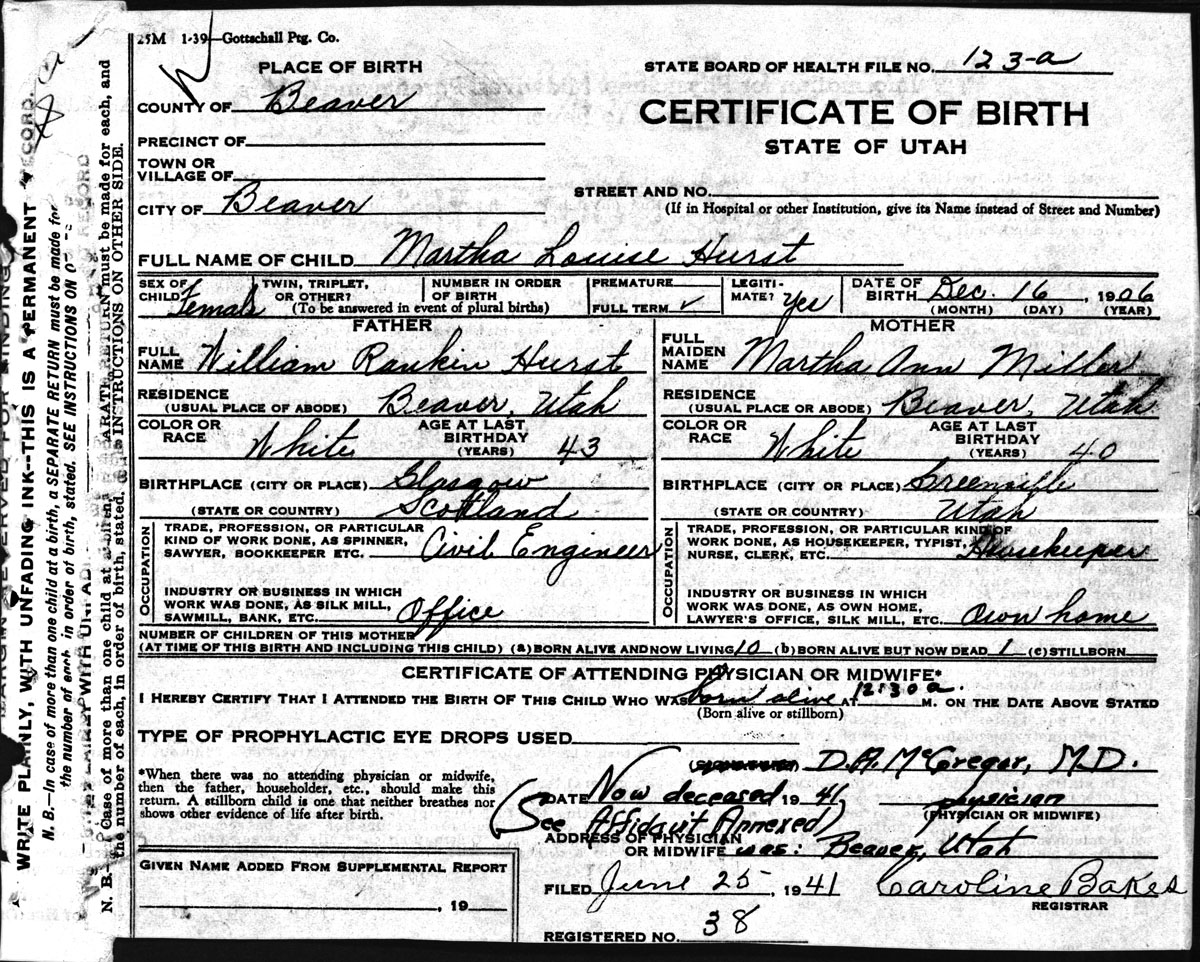 25M 1-39—Gottschall Ptg. Co.
PLACE OF BIRTH
STATE BOARD OF HEALTH FILE NO. 123-a
COUNTY OF Beaver
CERTIFICATE OF BIRTH
PRECINCT OF
STATE OF UTAH
TOWN OR
VILLAGE OF
STREET AND NO.
CITY OF Beaver
(If in Hospital or other Institution, give its Name instead of Street and Number)
FULL NAME OF CHILD Martha Louise Hurst
SEX OF CHILD Female
TWIN, TRIPLET, OR OTHER?
NUMBER IN ORDER OF BIRTH
(To be answered in event of plural births)
PREMATURE
FULL TERM ✓
LEGITI-
MATE? Yes
DATE OF BIRTH Dec. 16, 1906
(MONTH) (DAY) (YEAR)
FATHER
FULL NAME William Rankin Hurst
RESIDENCE
(USUAL PLACE OF ABODE) Beaver, Utah
COLOR OR RACE White
AGE AT LAST BIRTHDAY (YEARS) 43
BIRTHPLACE (CITY OR PLACE) Glasgow
(STATE OR COUNTRY) Scottland
OCCUPATION
TRADE, PROFESSION, OR PARTICULAR
KIND OF WORK DONE, AS SPINNER,
SAWYER, BOOKKEEPER ETC. Civil Engineer
INDUSTRY OR BUSINESS IN WHICH
WORK WAS DONE, AS SILK MILL,
SAWMILL, BANK, ETC. Office
MOTHER
FULL MAIDEN NAME Martha Ann Miller
RESIDENCE
(USUAL PLACE OR ABODE) Beaver, Utah
COLOR OR RACE White
AGE AT LAST BIRTHDAY (YEARS) 40
BIRTHPLACE (CITY OR PLACE) Greenville
(STATE OR COUNTRY) Utah
OCCUPATION
TRADE, PROFESSION, OR PARTICULAR KIND OF
WORK DONE, AS HOUSEKEEPER, TYPIST,
NURSE, CLERK, ETC. Housekeeper
INDUSTRY OR BUSINESS IN WHICH
WORK WAS DONE, AS OWN HOME,
LAWYER'S OFFICE, SILK MILL, ETC. Own home
NUMBER OF CHILDREN OF THIS MOTHER
(AT TIME OF THIS BIRTH AND INCLUDING THIS CHILD) (a) BORN ALIVE AND NOW LIVING 10 (b) BORN ALIVE BUT NOW DEAD 1 (c) STILLBORN
CERTIFICATE OF ATTENDING PHYSICIAN OR MIDWIFE*
I HEREBY CERTIFY THAT I ATTENDED THE BIRTH OF THIS CHILD WHO WAS born alive AT 12:30 a. M. ON THE DATE ABOVE STATED
(Born alive or stillborn)
TYPE OF PROPHYLACTIC EYE DROPS USED
D.A. McGregor, M.D.
*When there was no attending physician or midwife,
then the father, householder, etc., should make this
return. A stillborn child is one that neither breathes nor
shows other evidence of life after birth.
DATE Now deceased 1941, physician
(PHYSICIAN OR MIDWIFE)
(See Affidavit Annexed)
ADDRESS OF PHYSICIAN
OR MIDWIFE was: Beaver, Utah
GIVEN NAME ADDED FROM SUPPLEMENTAL REPORT
, 19
FILED June 25, 1941 Caroline Bakes
REGISTRAR
REGISTERED NO. 38
WRITE PLAINLY, WITH UNFADING INK--THIS IS A PERMANENT RECORD.
N. B.—In case of more than one child at a birth, a SEPARATE RETURN must be made for
the number of each, in order of birth, stated. SEE INSTRUCTIONS ON